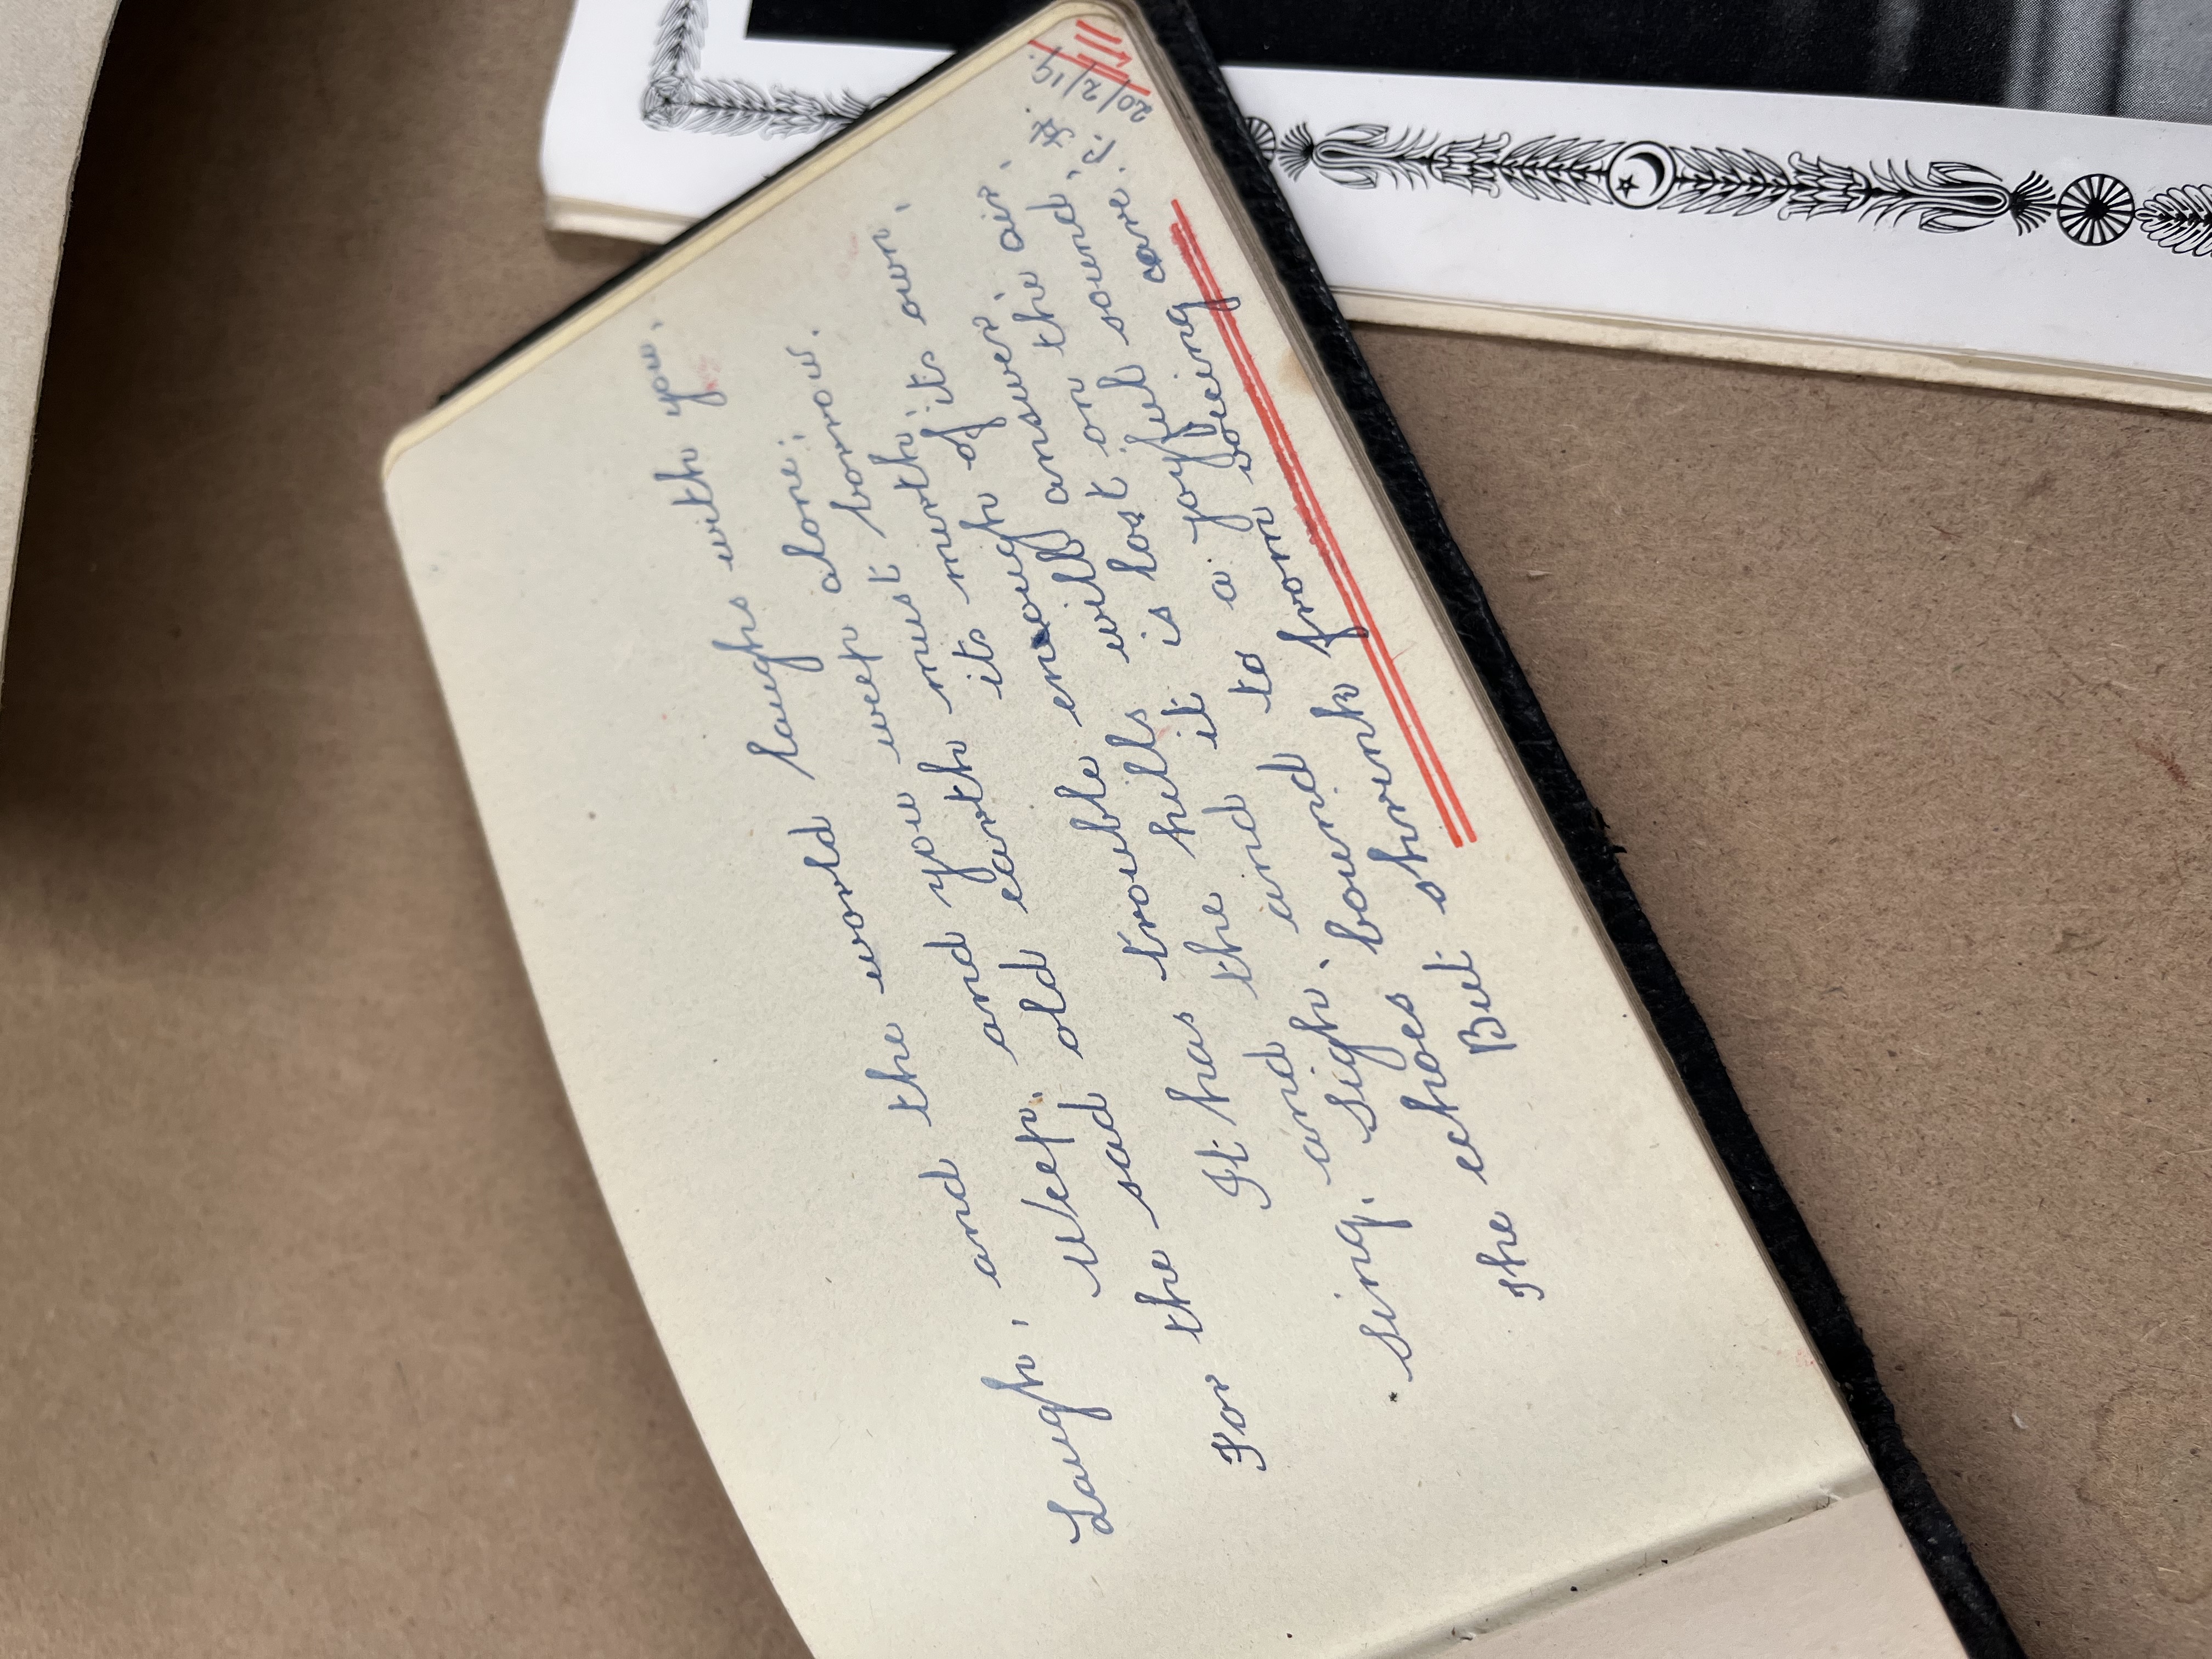 Laugh, and the world laughs with you,
Weep, and you weep alone;
For the sad old earth must borrow its mirth;
It has trouble enough of its own,
Sing, and the hills will answer
Sigh, and it is lost on the air,
The echoes bound to a joyful sound,
But shrink from voicing care.
20/2/19.